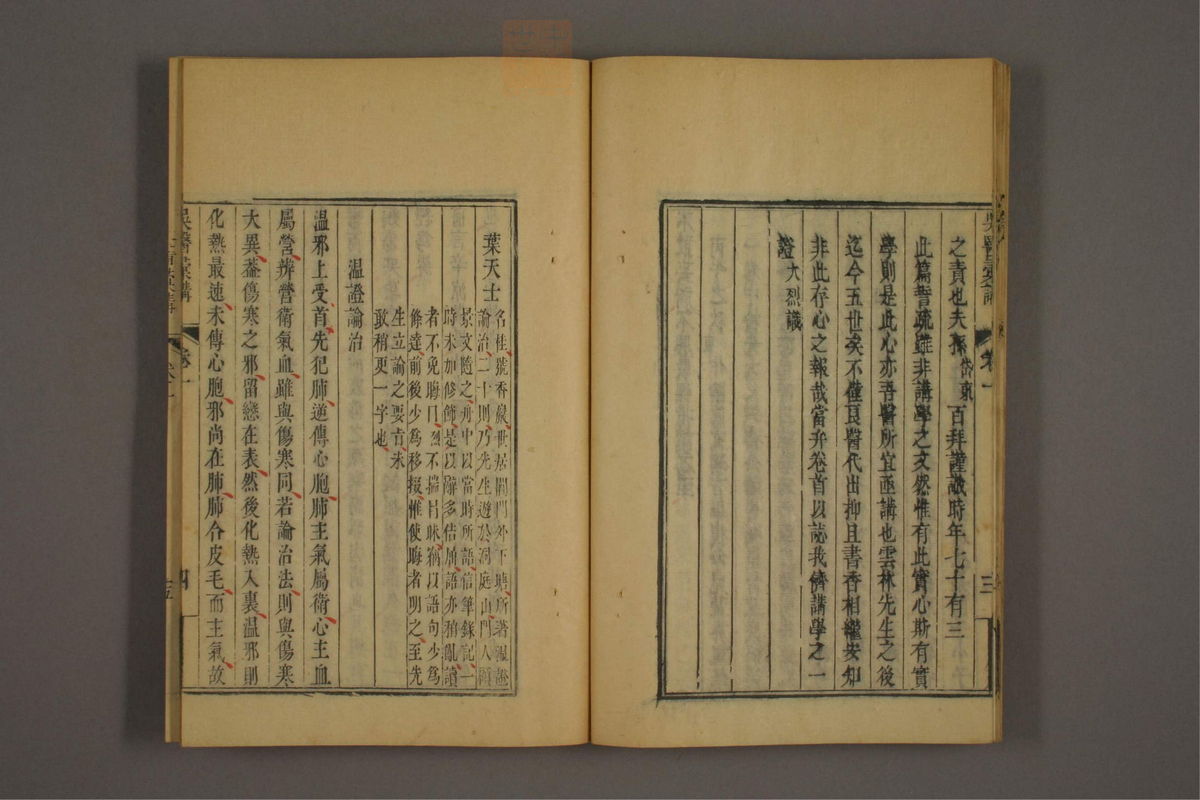 之責也夫孫岱東百拜謹識時年七十有三
此篇誓疏雖非講學之文然惟有此實心斯有實
學則是此心亦吾醫所宜亟講也雲林先生之後
迄今五世矣不僅良醫代出抑且書香相繼安知
非此存心之報哉當弁卷首以誌我儕講學之一
證大烈識
吳醫彙講
卷一
三
葉天士
名桂號香巖世居閶門外下塘所著溫證
論治二十則乃先生遊於洞庭山門人顧
景文隨之舟中以當時所語信筆錄記一
時未加修飾是以辭多佶屈語亦稍亂讀
者不免晦目烈不揣冒昧竊以語句少為
條達前後少為移掇惟使晦者明之至先
生立論之要旨未
敢稍更一字也
溫證論治
溫邪上受首先犯肺逆傳心胞肺主氣屬衛心主血
屬營辨營衛氣血雖與傷寒同若論治法則與傷寒
大異葢傷寒之邪留戀在表然後化熱入裏溫邪則
化熱最速未傳心胞邪尚在肺肺合皮毛而主氣故
吳醫彙講
卷一
四